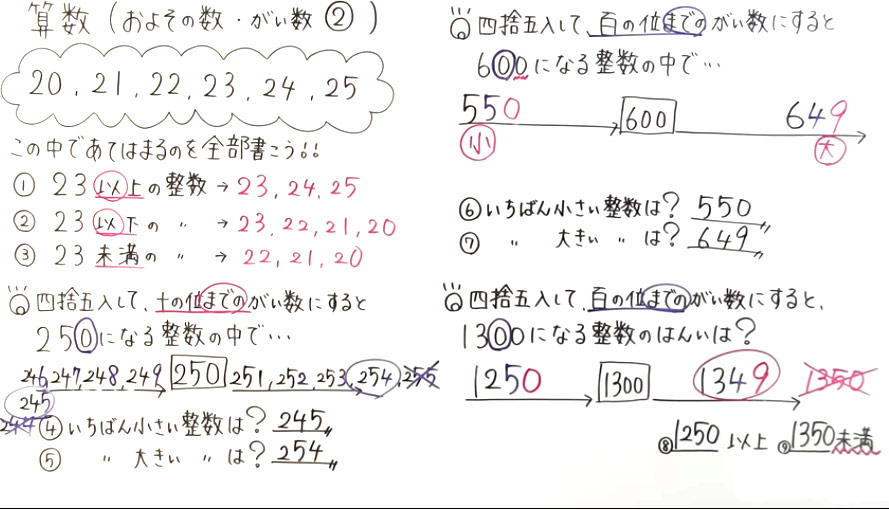 算数(およその数・がい数②)
20, 21, 22, 23, 24, 25
この中であてはまるのを全部書こう!!
① 23以上の整数→23, 24, 25
② 23以下の 〃 → 23, 22, 21, 20
③ 23未満の 〃 → 22, 21, 20
四捨五入して、十の位までのがい数にすると
250になる整数の中で…
246, 247, 248, 249 250 251, 252, 253, 254, 255
245
244
④ いちばん小さい整数は? 245
⑤ 〃 大きい 〃 は? 254
四捨五入して、百の位までのがい数にすると
600になる整数の中で…
550 600 649
小 大
⑥ いちばん小さい整数は? 550
⑦ 〃 大きい 〃 は? 649
四捨五入して、百の位までのがい数にすると、
1300になる整数のはんいは?
1250 1300 1349 1350
⑧ 1250 以上 ⑨ 1350未満